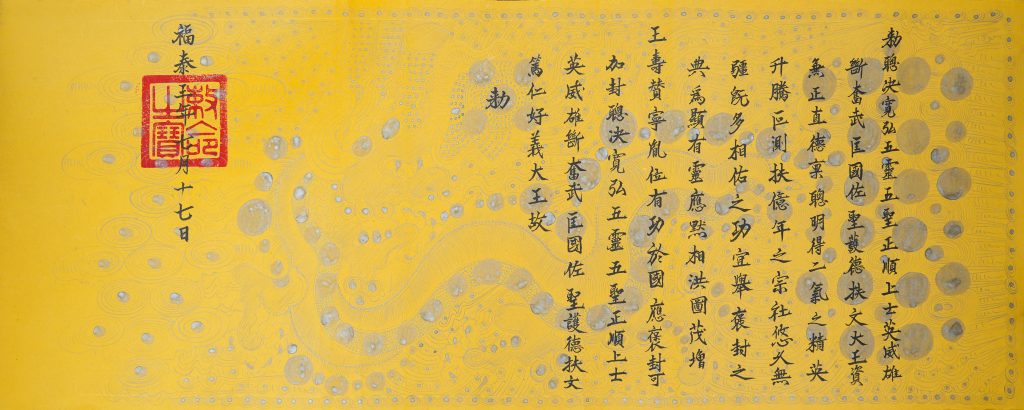 勅聰决寬弘五靈五聖正順上士英威雄
斷奮武匡國佐聖護德扶文大王資
無正直德稟聰明得二氣之精英
升騰叵測扶億年之宗社悠久無
疆旣多相佑之功宜舉褒封之
典爲顯有靈應默相洪圖茂增
王壽贊寧胤位有功於國應褒封可
加封聰决寬弘五靈五聖正順上士
英威雄斷奮武匡國佐聖護德扶文
篤仁好義大王故
勅
福泰年七月十七日
敕命之寶